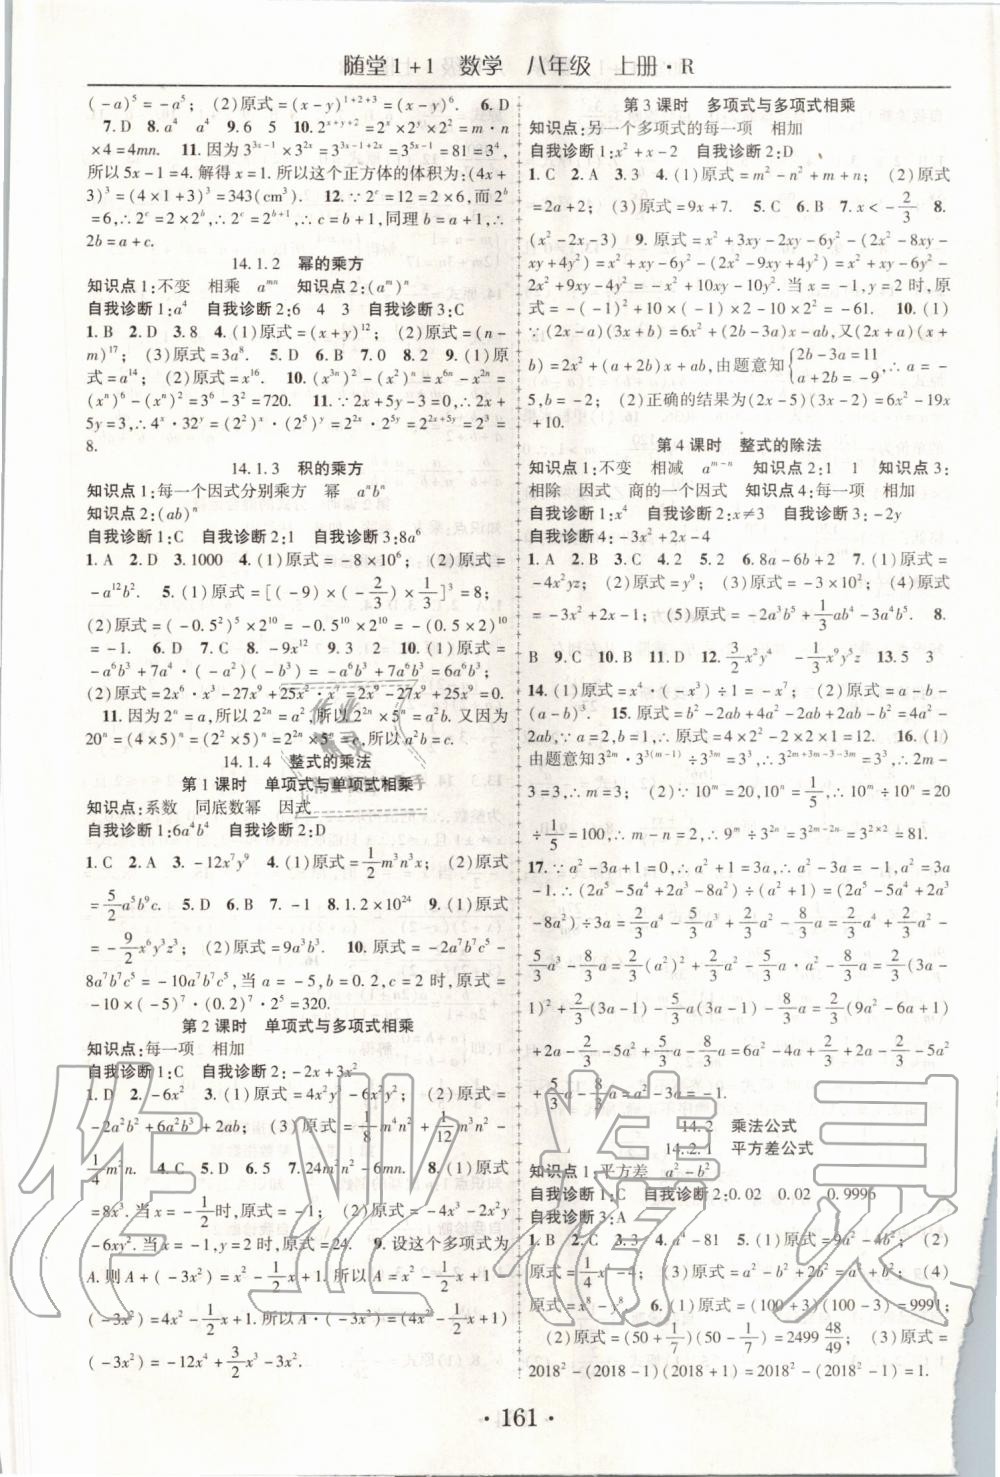 随堂1+1 数学 八年级 上册·R
(-a)⁵=-a⁵；(2)原式=(x-y)¹⁺²⁺³=(x-y)⁶. 6.D
7.D 8.a⁴ a⁴ 9.6 5 10.2ˣ⁺ʸ⁺²=2ˣ×2ʸ×2²=m·n
×4=4mn. 11.因为3³ˣ⁻¹×3²ˣ=3⁵ˣ⁻¹=81=3⁴,
所以5x-1=4.解得x=1.所以这个正方体的体积为:(4x+
3)³=(4×1+3)³=343(cm³). 12.∵2ᶜ=12=2×6,而2ᵇ
=6,∴2ᶜ=2×2ᵇ,∴2ᶜ=2ᵇ⁺¹,∴c=b+1,同理b=a+1,∴
2b=a+c.
14.1.2 幂的乘方
知识点1:不变 相乘 aᵐⁿ 知识点2:(aᵐ)ⁿ
自我诊断1:a⁴ 自我诊断2:6 4 3 自我诊断3:C
1.B 2.D 3.8 4.(1)原式=(x+y)¹²；(2)原式=(n-
m)¹⁷；(3)原式=3a⁸. 5.D 6.B 7.0 8.2 9.(1)原
式=a¹⁴；(2)原式=x¹⁶. 10.(x³ⁿ)²-(x²)ⁿ=x⁶ⁿ-x²ⁿ=
(xⁿ)⁶-(xⁿ)²=3⁶-3²=720. 11.∵2x+5y-3=0,∴2x+
5y=3,∴4ˣ·32ʸ=(2²)ˣ·(2⁵)ʸ=2²ˣ·2⁵ʸ=2²ˣ⁺⁵ʸ=2³=
8.
14.1.3 积的乘方
知识点1:每一个因式分别乘方 幂 aⁿbⁿ
知识点2:(ab)ⁿ
自我诊断1:C 自我诊断2:D 自我诊断3:8a⁶
1.A 2.D 3.1000 4.(1)原式=-8×10⁶；(2)原式=
-a¹²b². 5.(1)原式=[(-9)×(-2/3)×1/3]³=8；
(2)原式=(-0.5²)⁵×2¹⁰=-0.5¹⁰×2¹⁰=-(0.5×2)¹⁰
=-1. 6.D 7.C 8.-9x¹² 9.3 2 10.(1)原式=
-a⁶b³+7a⁴·(-a)²(-b³)=-a⁶b³+7a⁶b³=6a⁶b³；
(2)原式=2x⁶·x³-27x⁹+25x²·x⁷=2x⁹-27x⁹+25x⁹=0.
11.因为2ⁿ=a,所以2²ⁿ=a²,所以2²ⁿ×5ⁿ=a²b.又因为
20ⁿ=(4×5)ⁿ=(2²×5)ⁿ=2²ⁿ×5ⁿ=c,所以a²b=c.
14.1.4 整式的乘法
第1课时 单项式与单项式相乘
知识点:系数 同底数幂 因式
自我诊断1:6a⁴b⁴ 自我诊断2:D
1.C 2.A 3.-12x⁷y⁹ 4.(1)原式=1/2m³n³x；(2)原式
=5/2a⁵b⁹c. 5.D 6.B 7.-1 8.1.2×10²⁴ 9.(1)原式
=-9/2x⁶y³z³；(2)原式=9a³b³. 10.原式=-2a⁷b⁷c⁵-
8a⁷b⁷c⁵=-10a⁷b⁷c⁵,当a=-5,b=0.2,c=2时,原式=
-10×(-5)⁷·(0.2)⁷·2⁵=320.
第2课时 单项式与多项式相乘
知识点:每一项 相加
自我诊断1:C 自我诊断2:-2x+3x²
1.D 2.-6x² 3.(1)原式=4x²y³-6x²y²；(2)原式=
-2a²b²+6a²b³+2ab；(3)原式=1/8m⁴n³+1/12m³n²-
1/4m²n. 4.C 5.D 6.5 7.24m²n²-66mn. 8.(1)原式
=8x³.当x=-1/2时,原式=-1；(2)原式=2x³y+4x²y²
-6xy².当x=-1/2,y=2时,原式=24. 9.设这个多项式为
A.则A+(-3x²)=x²-1/2x+1.所以A=x²-1/2x+1-
(-3x²)=4x²-1/2x+1.所以A·(-3x²)=(4x²-1/2x+1)
(-3x²)=-12x⁴+3/2x³-3x².
第3课时 多项式与多项式相乘
知识点:另一个多项式的每一项 相加
自我诊断1:x²+x-2 自我诊断2:D
1.C 2.A 3.3 4.(1)原式=m²-n²+m+n；(2)原式
=2a+2；(3)原式=9x+7. 5.C 6.B 7.x<-2/3 8.
(x²-2x-3) 9.原式=x²+3xy-2xy-6y²-(2x²-8xy-
xy+4y²)=x²+3xy-2xy-6y²-2x²+8xy+xy-4y²=x²-
2x²+9xy+xy-6y²-4y²=-x²+10xy-10y².当x=-1,y=2时,原
式=-(-1)²+10×(-1)×2-10×2²=-61. 10.(1)
∵(2x-a)(3x+b)=6x²+(2b-3a)x-ab,又(2x+a)(x+
b)=2x²+(a+2b)x+ab,由题意知{2b-3a=11 a+2b=-9,∴a=-
5,b=-2；(2)正确的结果为(2x-5)(3x-2)=6x²-19x
+10.
第4课时 整式的除法
知识点1:不变 相减 aᵐ⁻ⁿ 知识点2:1 1 知识点3:
相除 因式 商的一个因式 知识点4:每一项 相加
自我诊断1:x⁴ 自我诊断2:x≠3 自我诊断3:-2y
自我诊断4:-3x²+2x-4
1.A 2.B 3.C 4.2 5.2 6.8a-6b+2 7.(1)原式=
-4x²yz；(2)原式=y⁹；(3)原式=-3×10⁵；(4)原式=
=-3x²+2x-1；(5)原式=-2a³b⁵+1/3ab⁴-3a⁴b⁵. 8.
B 9.C 10.B 11.D 12.3/2x²y⁴ -1/3x⁹y⁵z 13.5 3
14.(1)原式=x⁴·(-x³)÷1=-x⁷；(2)原式=a-b-
(a-b)=0. 15.原式=b²-2ab+4a²-2ab+2ab-b²=4a²-
2ab,∵a=2,b=1,∴原式=4×2²-2×2×1=12. 16.(1)
由题意知3²ᵐ·3³⁽ᵐ⁻¹⁾÷3³ᵐ=3³,∴3²ᵐ⁺³ᵐ⁻³⁻³ᵐ=3³,∴2m-
3=3,∴m=3；(2)∵10ᵐ=20,10ⁿ=1/5,∴10ᵐ÷10ⁿ=20
÷1/5=100,∴m-n=2,∴9ᵐ÷3²ⁿ=3²ᵐ⁻²ⁿ=3²ˣ²=81.
17.∵a²-3a+1=0,∴a²+1=3a,∴a²-3a=-1,∴a²=3a
-1.∴(2a⁵-5a⁴+2a³-8a²)÷(a²+1)=(2a⁵-5a⁴+2a³
-8a²)÷3a=2/3a⁴-5/3a³+2/3a²-8/3a=2/3a⁴+2/3a²-
5/3a³-8/3a=2/3(a²)²+2/3a²-5/3a·a²-8/3a=2/3(3a-
1)²+2/3(3a-1)-5/3a(3a-1)-8/3a=2/3(9a²-6a+1)
+2a-2/3-5a²+5/3a-8/3a=6a²-4a+2/3+2a-2/3-5a²
+5/3a-8/3a=a²-3a=-1.
14.2 乘法公式
14.2.1 平方差公式
知识点1:平方差 a²-b²
自我诊断1:C 自我诊断2:0.02 0.02 0.9996
自我诊断3:A
1.B 2.C 3.3 4.a⁴-81 5.(1)原式=9a²-4b²；(2)
原式=1/4x²-4；(3)原式=a²-b²+2b²=a²+b²；(4)
原式=x⁸-y⁸. 6.(1)原式=(100+3)(100-3)=9991；
(2)原式=(50+1/7)(50-1/7)=2499 48/49；(3)原式=
2018²-(2018-1)(2018+1)=2018²-(2018²-1)=1.
·161·
作业精灵